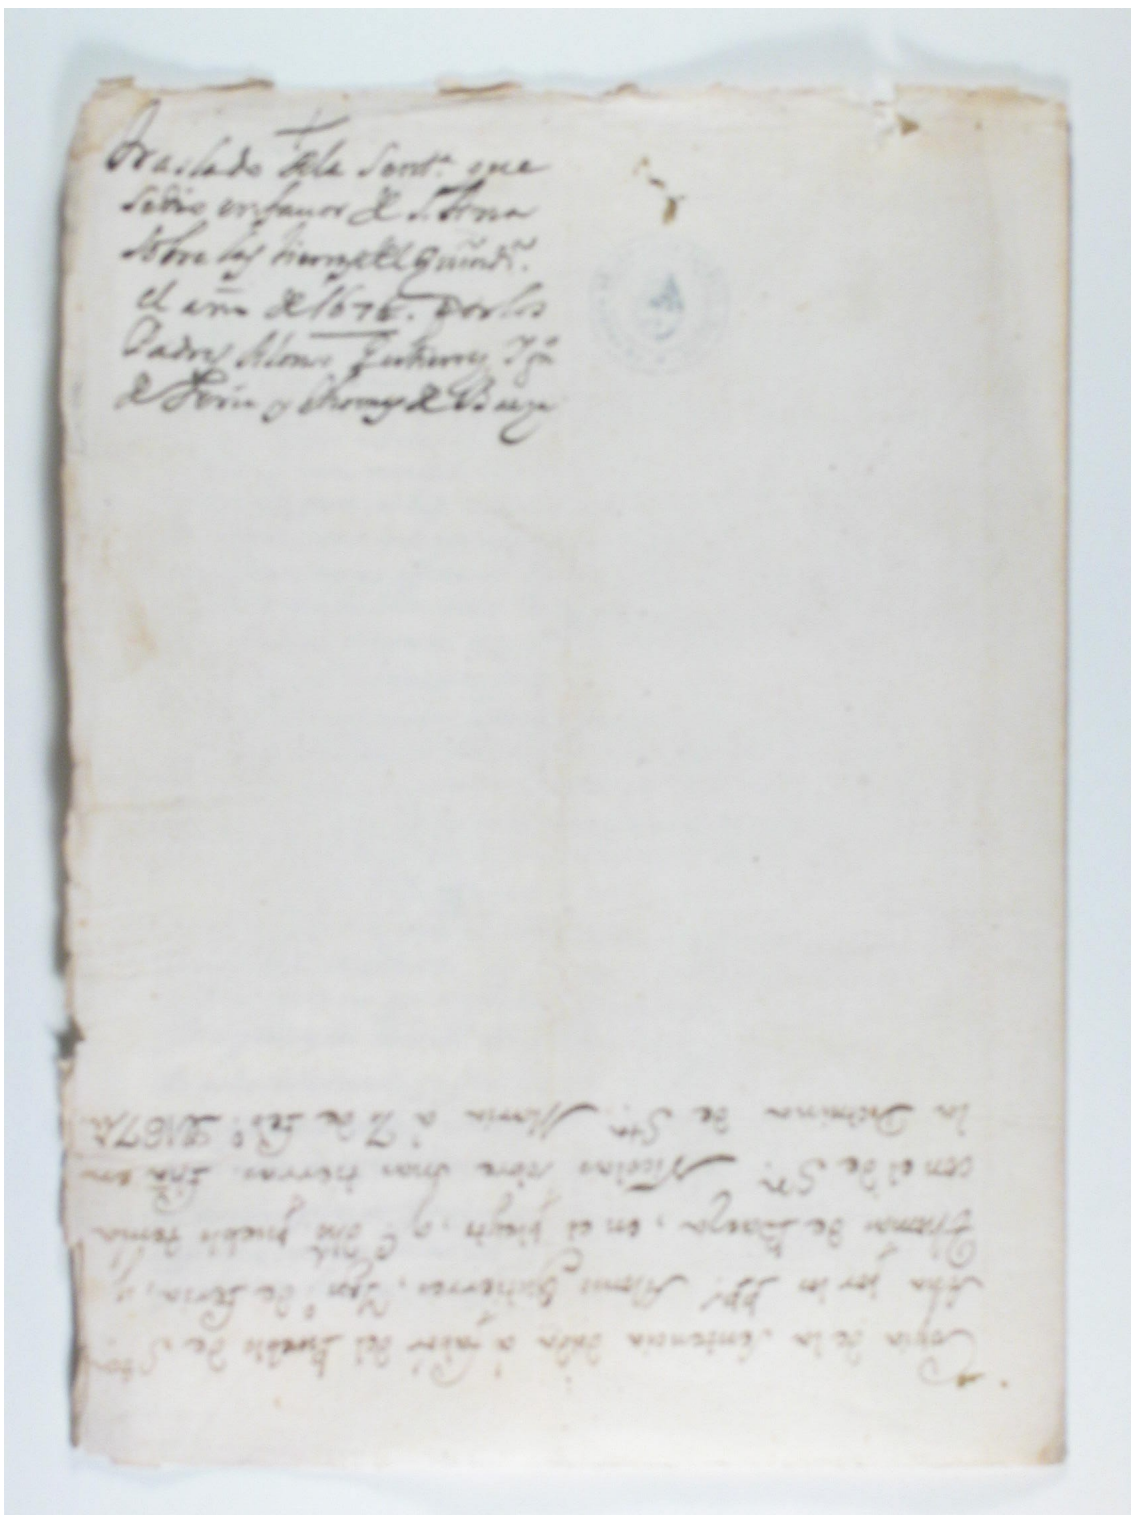 Traslado dela Sent.ª que
sedio enfavor de S. Anna
sobre las tierras del
el año de 1675. por los
Padres Alonso Gutierrez Ygn.
de Feria y Thomas de Baeza
Copia de la sentencia dada a favor del Pueblo de Sta.
Ana por los PP. Alonso Gutierrez, Ign.º de Feria, y
Thomas de Baeza, en el pleyto, q.e dho pueblo tenia
con el de S.n Nicolas sobre unas tierras. Fha en
la Doctrina de Sta. Maria à 7 de Feb.º D1675.